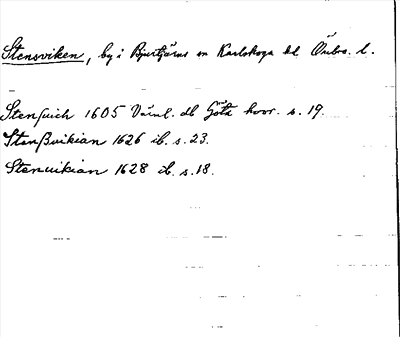 Stensviken, by i Bjurtjärns sn Karlskoga bl Örebro l.
Stenſuich 1605 Värml. db Göta hovr. s. 19.
Stenßuikian 1626 ib. s. 23.
Stenuikian 1628 ib. s. 18.